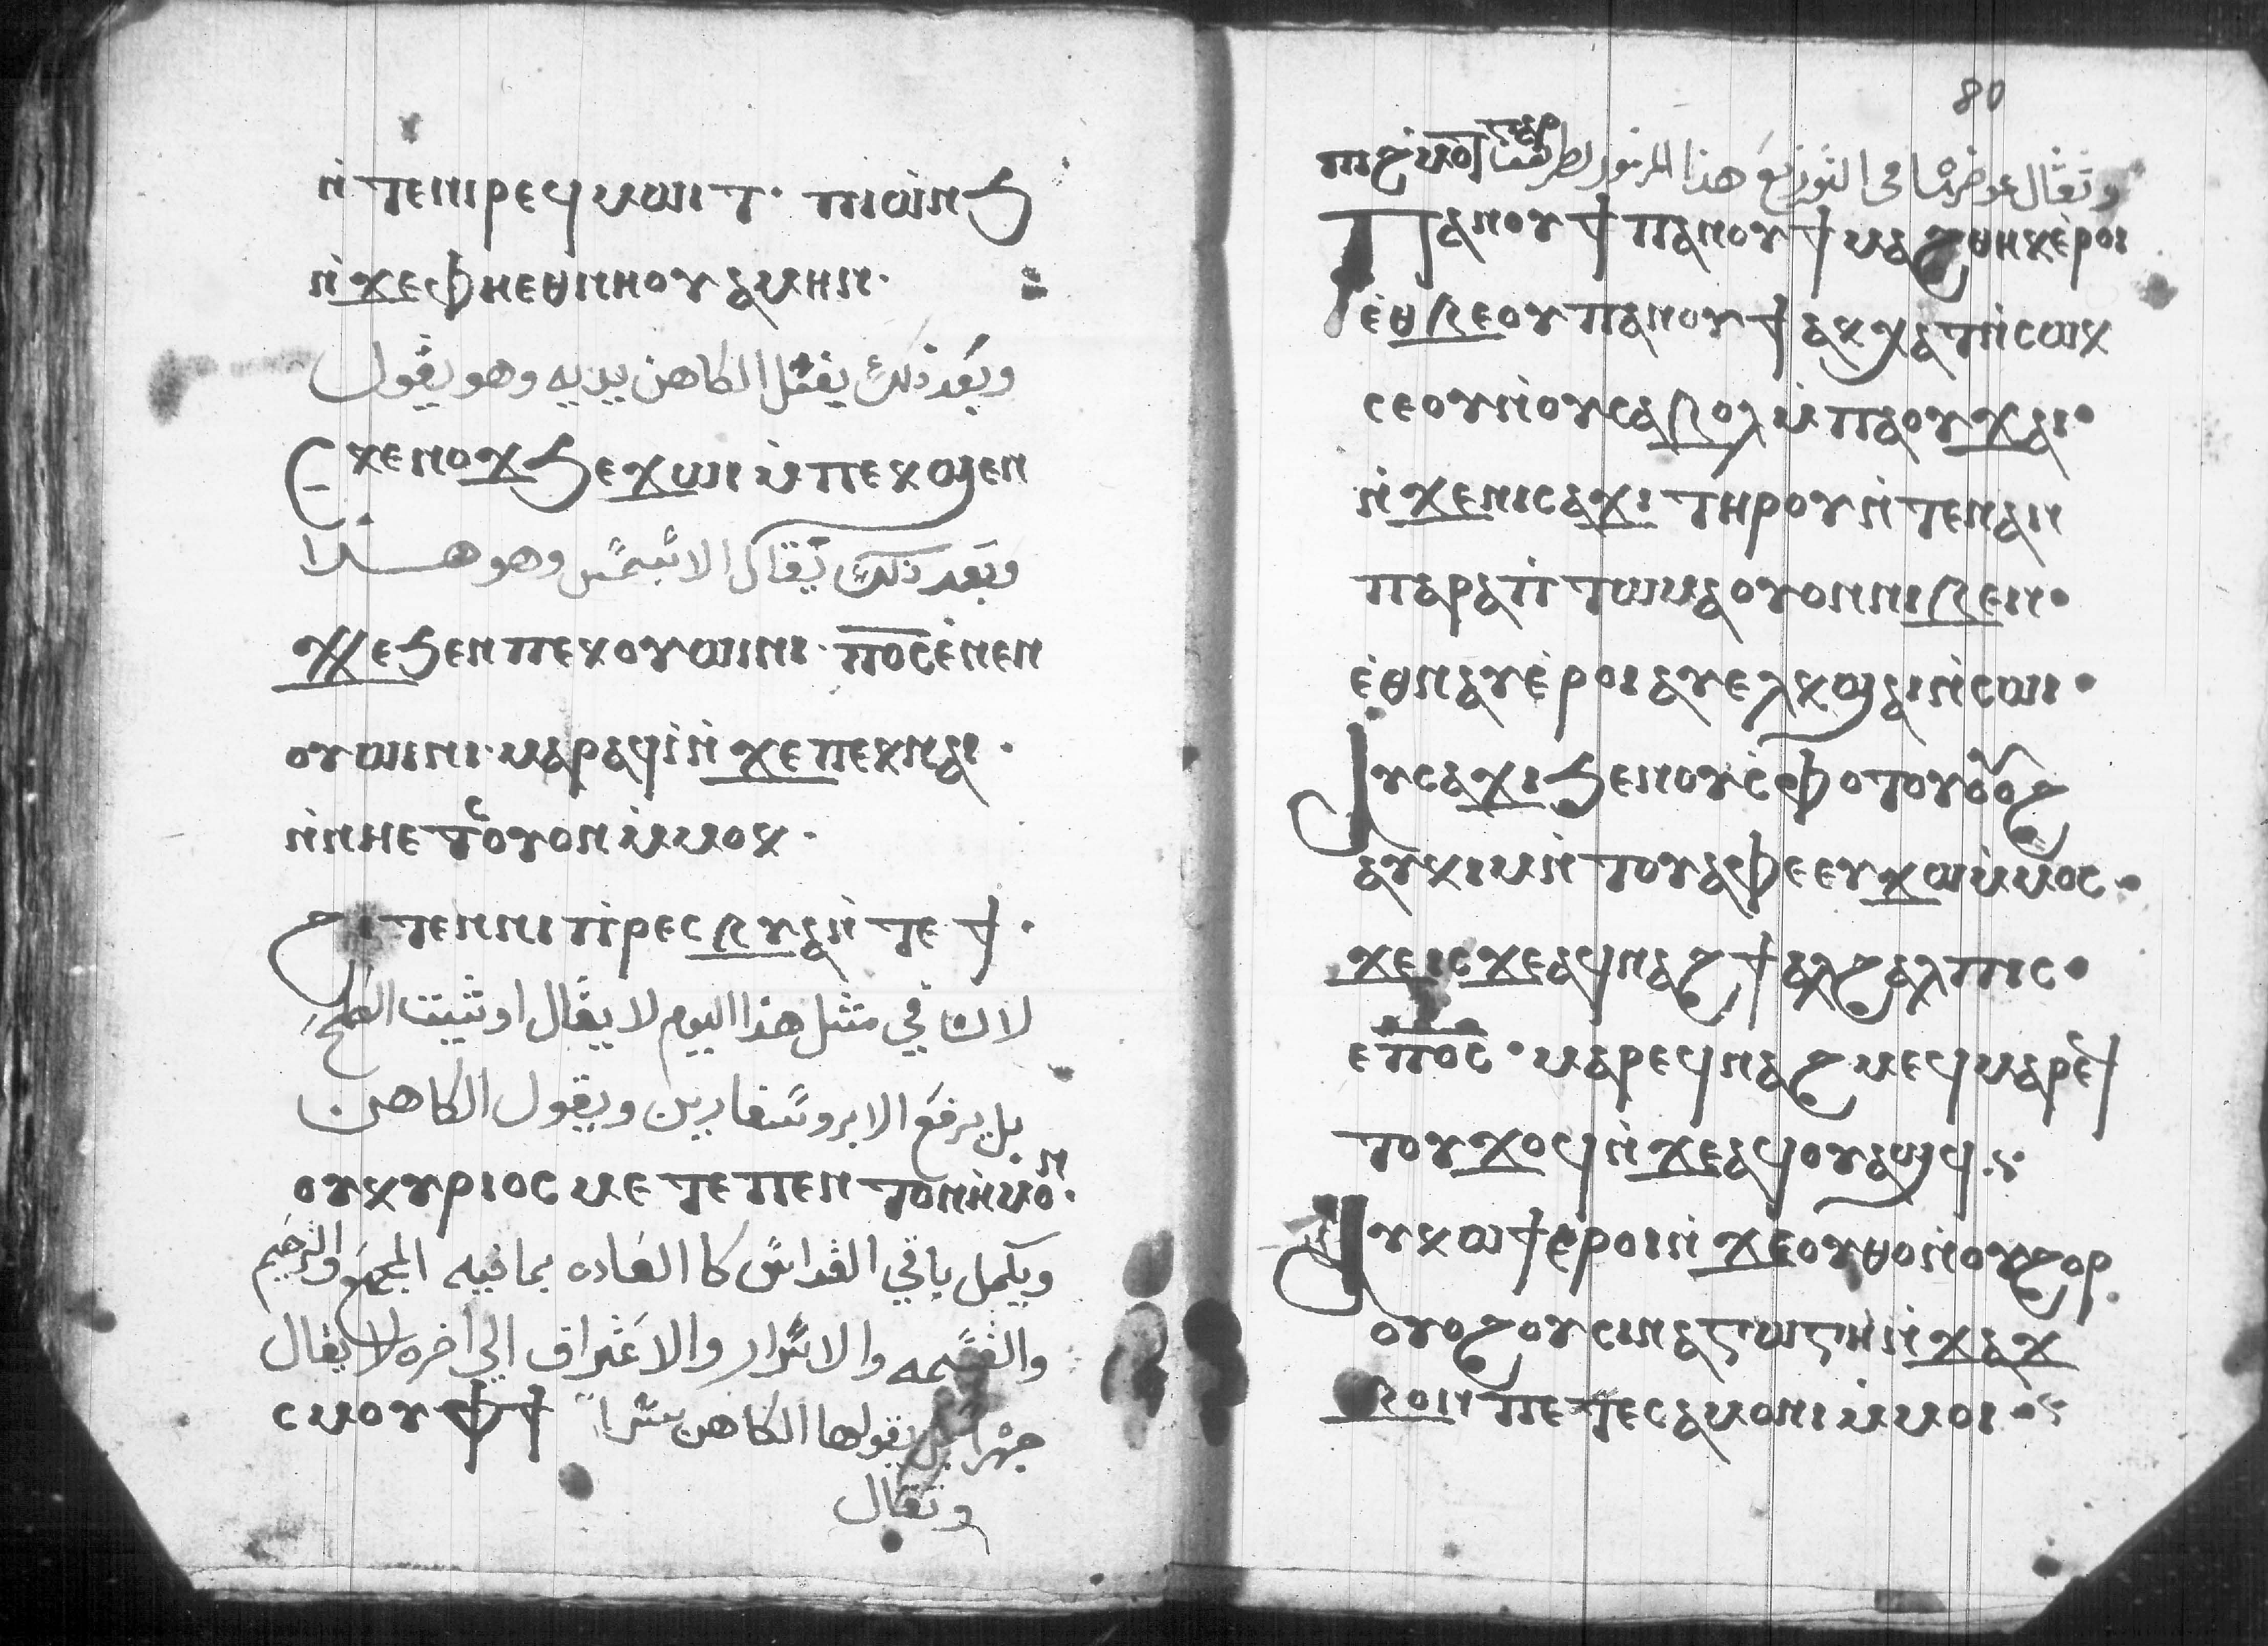 ⲛ̀ⲧⲉⲛⲓⲣⲉϥⲙⲱⲓⲧ· ⲡⲓⲱⲛϧ
ⲛ̀ϫⲉⲫⲏⲉⲑⲛⲏⲟⲩ ⲁⲙⲏⲛ·
وبعد ذلك يغسل الكاهن يديه وهو يقول
Ⲉⲕⲉⲛⲟϫϧ ⲉϫⲱⲓ ⲙ̀ⲡⲉⲕϣⲉⲛ
وبعد ذلك يقال الاسبسمس وهو هذا
ϫⲉ ϧⲉⲛ ⲡⲉⲕⲟⲩⲱⲓⲛⲓ· ⲡⲟ̅ⲥ̅ ⲉ̀ⲛⲉⲛ
ⲟⲩⲱⲓⲛⲓ· ⲙⲁⲣⲁϥⲓ̀ ⲛ̀ϫⲉⲡⲉⲕⲛⲁⲓ·
ⲛ̀ⲛⲏⲉⲧⲥⲟⲩⲟⲛ ⲙ̀ⲙⲟⲕ·
ϩⲓⲧⲉⲛ ⲛⲓⲡ̀ⲣⲉⲥⲃⲩⲁ ⲛ̀ⲧⲉϯ·
لان في مثل هذا اليوم لا يقال اوثينت الصلح
بل يرفع الابروسفارين ويقول الكاهن
ⲟⲩⲕⲩⲣⲓⲟⲥ ⲙⲉⲧⲉ ⲡⲉⲛⲧⲟⲛ ⲏ̀ⲙⲟⲛ·
ويكمل باقي القداس كالعاده بما فيه المجمع والترحيم
والقسمه والاسرار والاعتراف الي اخره لا يقال
جهراً بل يقولها الكاهن سراً ⲥⲙⲟⲩ ⲫϯ
وتقال
80
وتقال عوضها في التوزيع هذا المزمور
Ⲡⲁⲛⲟⲩϯ ⲡⲁⲛⲟⲩϯ ⲙⲁϩⲑⲏⲕ ⲉ̀ⲣⲟⲓ
ⲉ̀ⲑⲃⲉⲟⲩ ⲡⲁⲛⲟⲩϯ ⲁⲕⲭⲁⲧ ⲛ̀ⲥⲱⲕ
ⲥⲉⲟⲩⲛ̀ⲟⲩ ⲥⲁⲃⲟⲗ ⲙ̀ⲡⲁⲟⲩϫⲁⲓ·
ⲛ̀ϫⲉ ⲛⲓⲥⲁϫⲓ ⲧⲏⲣⲟⲩ ⲛ̀ⲧⲉⲛⲁⲛ
ⲡⲁⲣⲁⲡ̀ⲧⲱⲙⲁ ⲟⲩⲟⲛ ⲛⲓⲃⲉⲛ·
ⲉ̀ⲑⲛⲁⲩ ⲉ̀ⲣⲟⲓ ⲁⲩⲉⲗⲕϣⲁⲓ ⲛ̀ⲥⲱⲓ·
Ⲁⲩⲥⲁϫⲓ ϧⲉⲛ ⲟⲩⲥ̀ⲫⲟⲧⲟⲩ ⲟⲩⲟϩ
ⲁⲩⲕⲓⲙ ⲛ̀ⲧⲟⲩⲁⲫⲉ ⲉⲩϫⲱ ⲙ̀ⲙⲟⲥ·
ϫⲉ ⲓⲥϫⲉ ⲁϥⲛⲁϩϯ ⲁⲗϩⲁⲗⲡⲓⲥ·
ⲉ ⲡⲟ̅ⲥ̅· ⲙⲁⲣⲉϥⲛⲁϩⲙⲉϥ ⲙⲁⲣⲉϥ
ⲧⲟⲩϫⲟϥ ⲛ̀ϫⲉ ⲁϥⲟⲩⲁϣϥ·
Ⲁⲩⲕⲱϯ ⲉ̀ⲣⲟⲓ ⲛ̀ϫⲉ ⲟⲩⲑⲟ ⲛ̀ⲟⲩϩⲟⲣ
ⲟⲩⲟϩ ⲟⲩⲥⲓⲛⲁⲅⲱⲅⲏ ⲛ̀ϫⲁϫ
ⲃⲟⲛ ⲡⲉⲧⲉⲥⲁⲙⲟⲛⲓ ⲙ̀ⲙⲟⲓ·